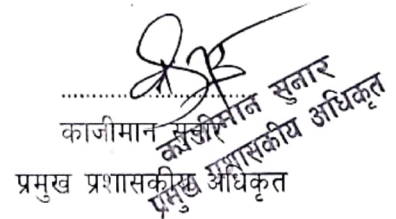 काजीमान सुनार
प्रमुख प्रशासकीय अधिकृत
काजीमान सुनार
प्रमुख प्रशासकीय अधिकृत